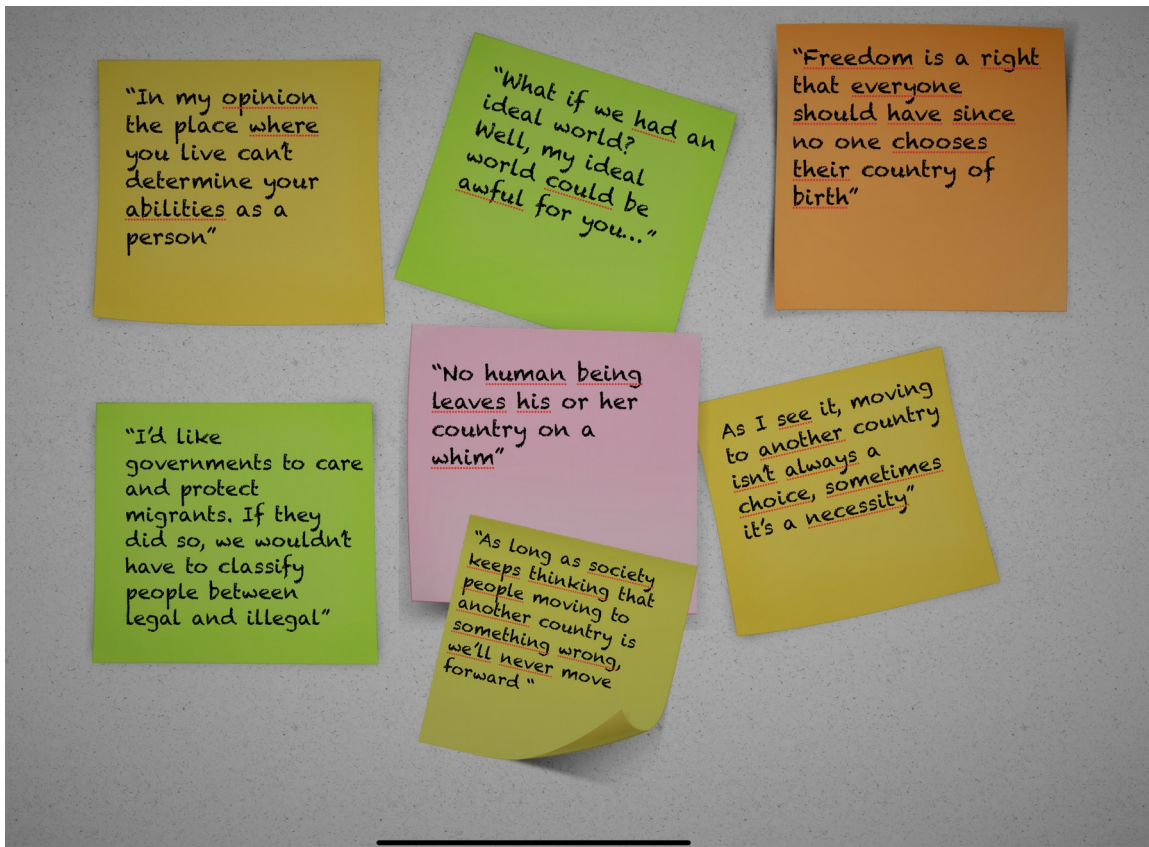 "In my opinion
the place where
you live can't
determine your
abilities as a
person"
"What if we had an
ideal world?
Well, my ideal
world could be
awful for you..."
"Freedom is a right
that everyone
should have since
no one chooses
their country of
birth"
"I'd like
governments to care
and protect
migrants. If they
did so, we wouldn't
have to classify
people between
legal and illegal"
"No human being
leaves his or her
country on a
whim"
As I see it, moving
to another country
isn't always a
choice, sometimes
it's a necessity"
"As long as society
keeps thinking that
people moving to
another country is
something wrong,
we'll never move
forward "